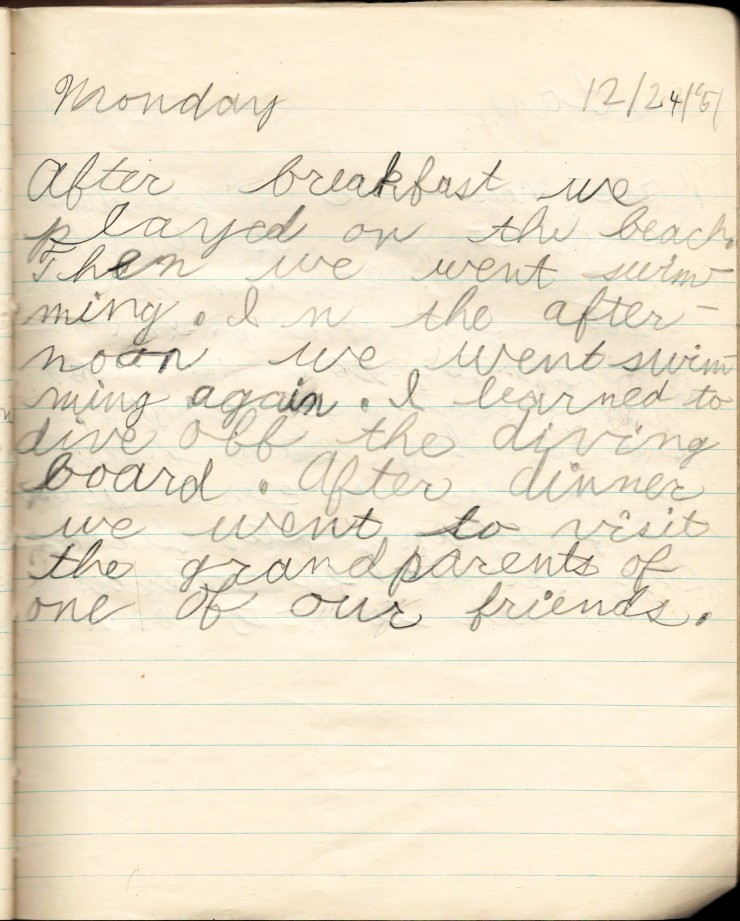 Monday 12/24/51
After breakfast we
played on the beach.
Then we went swim-
ming. In the after-
noon we went swim-
ming again. I learned to
dive off the diving
board. After dinner
we went to visit
the grandparents of
one of our friends.